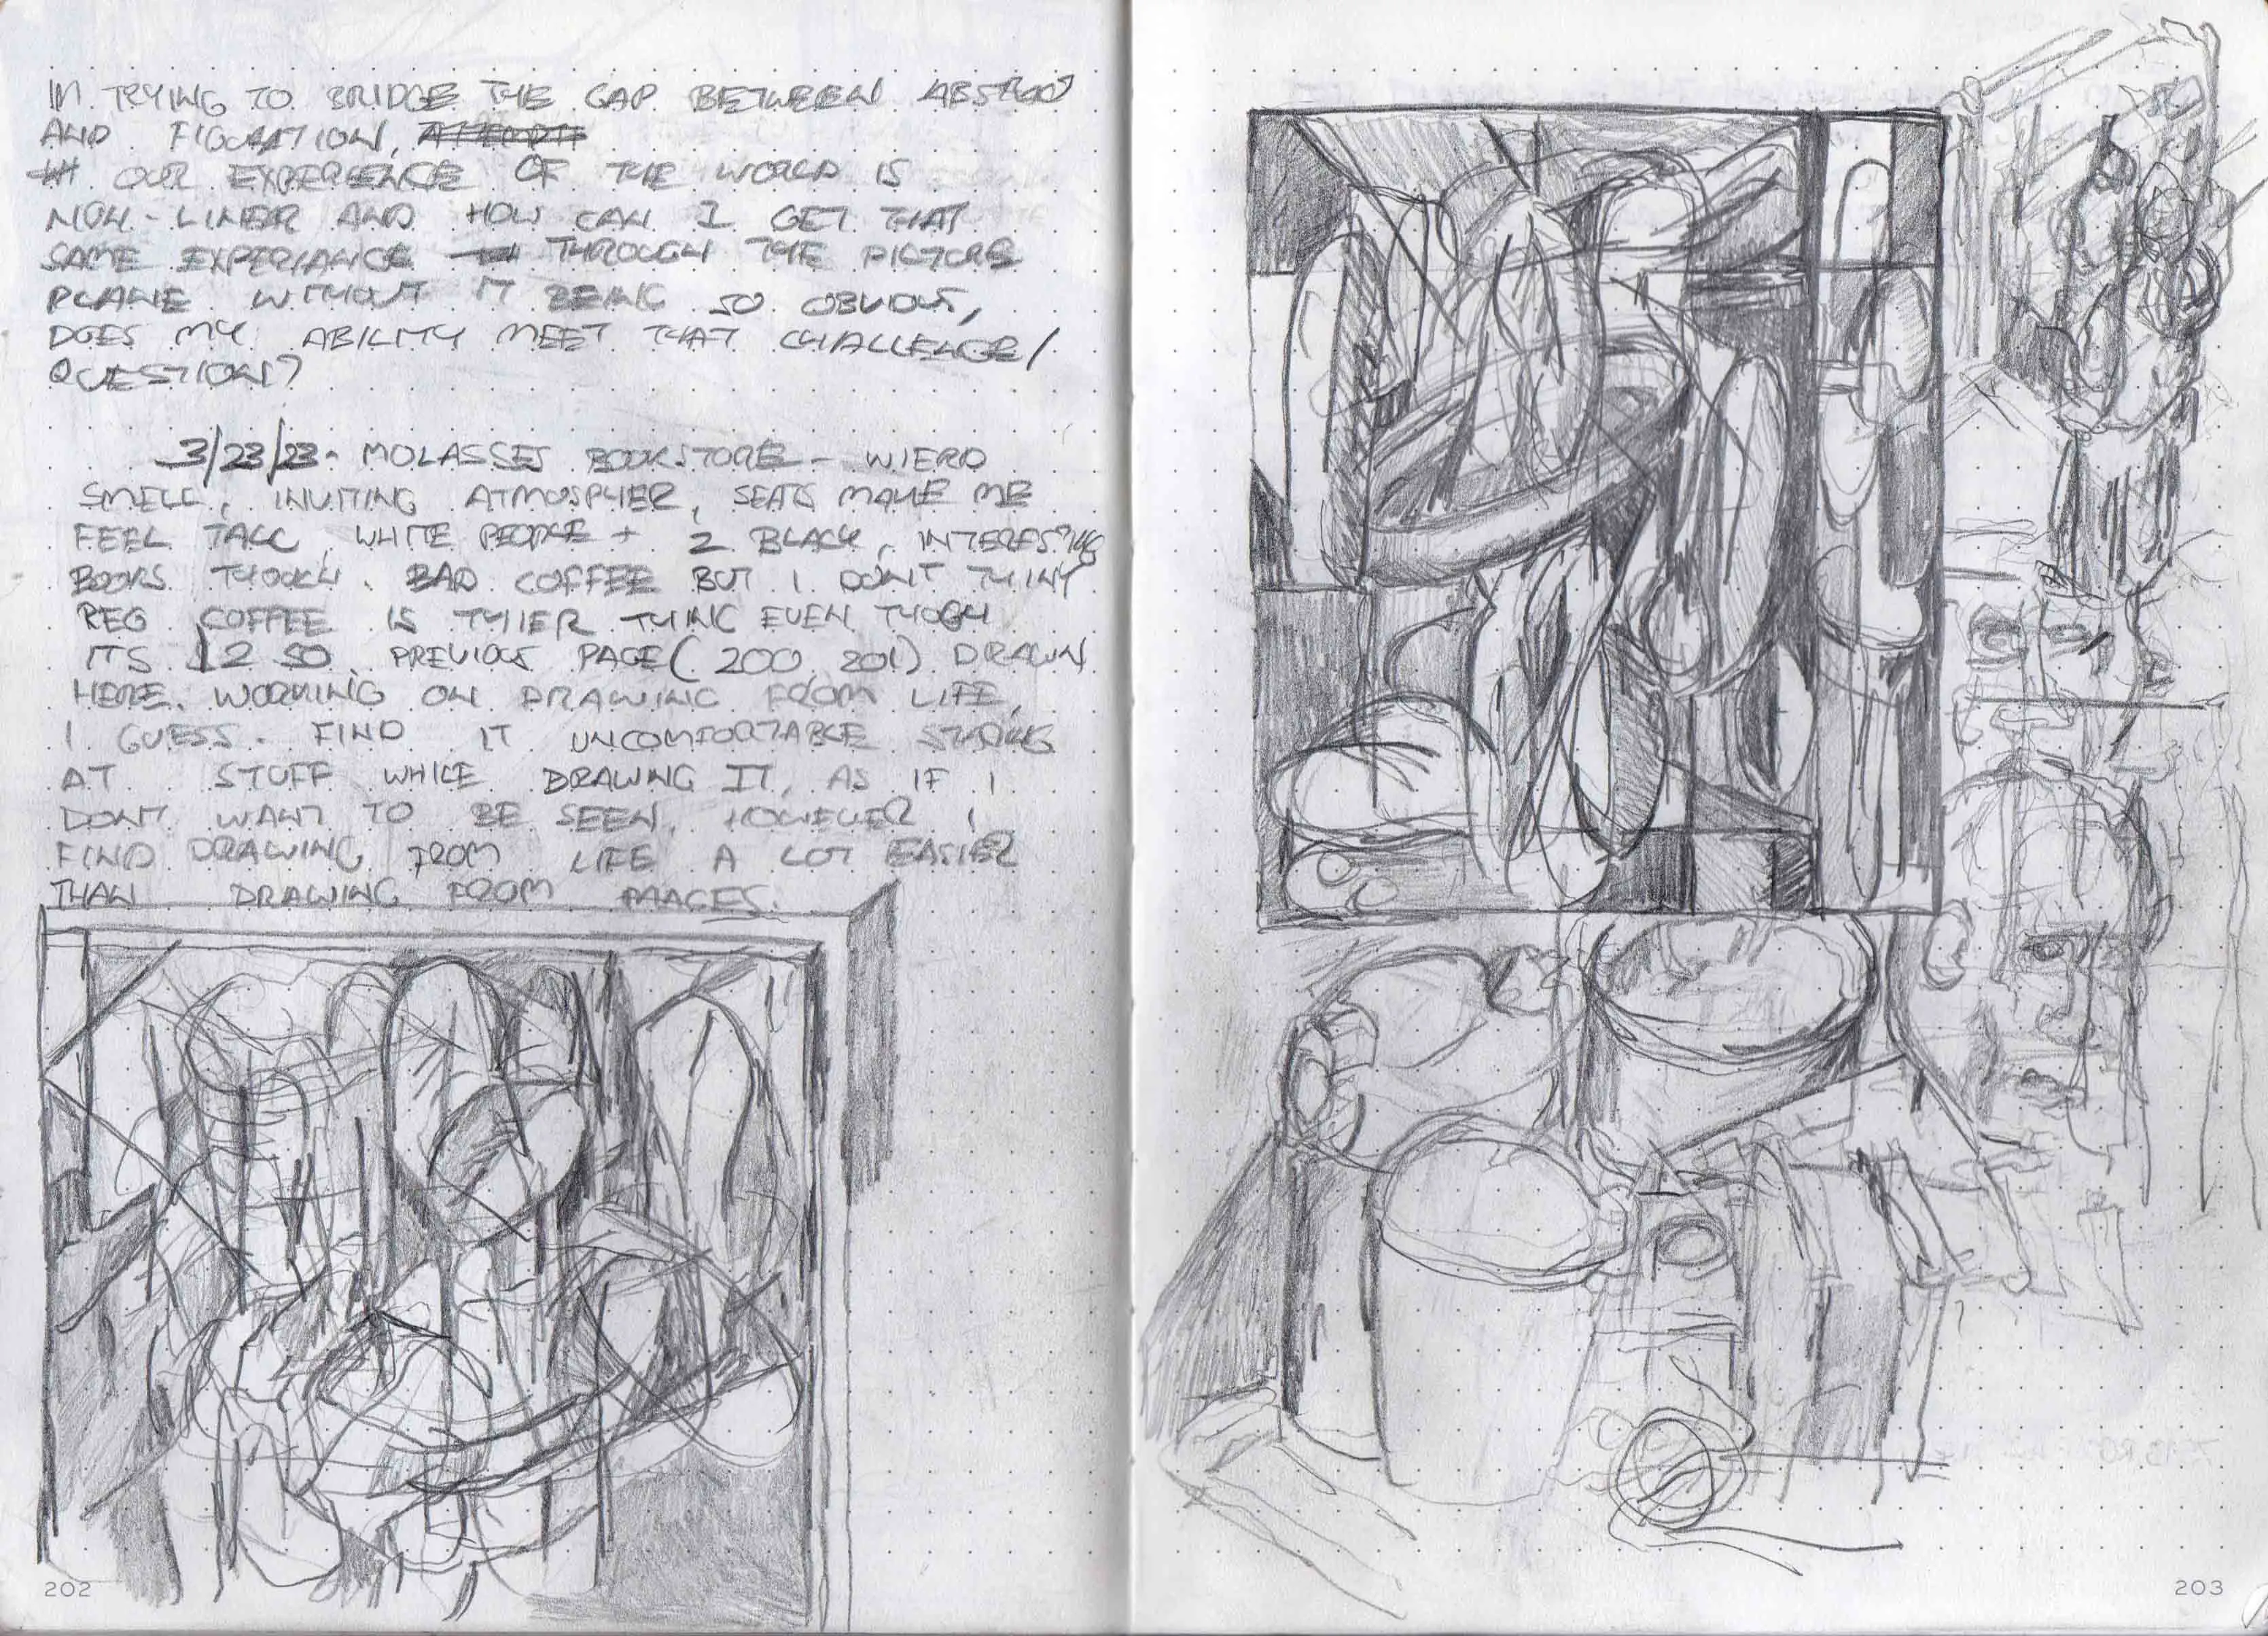 IN TRYING TO BRIDGE THE GAP BETWEEN
AND FIGURATION,
OUR EXPERIENCE OF THE WORLD IS
NON-LINEAR AND HOW CAN I GET THAT
SAME EXPERIANCE THROUGH THE PICTURE
PLANE WITHOUT IT BEING SO OBVIOUS,
DOES MY ABILITY MEET THAT CHALLENGE/
QUESTION?
3/23/23- MOLASSES BOOKSTORE - WIERD
SMELL, INVITING ATMOSPHER, SEATS MAKE ME
FEEL TALL, WHITE PEOPLE + 2 BLACK, INTERESTING
BOOKS THOUGH. BAD COFFEE BUT I DONT THINK
REG COFFEE IS THIER THING EVEN THOGH
ITS $2.50. PREVIOUS PAGE (200, 201) DRAWN
HERE. WORKING ON DRAWING FROM LIFE,
I GUESS. FIND IT UNCOMFORTABLE STARING
AT STUFF WHILE DRAWING IT, AS IF I
DONT WANT TO BE SEEN, HOWEVER I
FIND DRAWING FROM LIFE A LOT EASIER
THAN DRAWING FROM IMAGES.
202
203